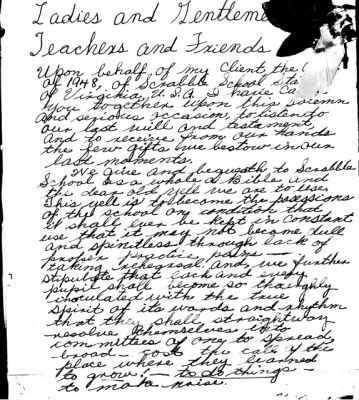 Ladies and Gentleme
Teachers and Friends
Upon behalf of my Client, the
of 1948, of Scrabble School, Sta
of Virginia, U.S.A. I have Ca
you together upon this solemn
and serious occasion, to listen to
our last will and testament
and to receive from our hands
the few gifts we bestow in our
last moments.
We give and bequeath to Scrabble
School as a whole a Bible and
the dear old yell we are to use.
This yell is to become the
of the school on condition that
it shall ever be kept in constant
use that it may not become dull
and spiritless through lack of
proper practice
taking rehearsal. And we further
stipulate that each and every
pupil shall become so
inoculated with the true
spirit of its words and rhythm
that they shall straightway
resolve themselves into
committees of one to spread
broad-cast the calls of the
place where they learned
to grow — to do things —
to make noise.